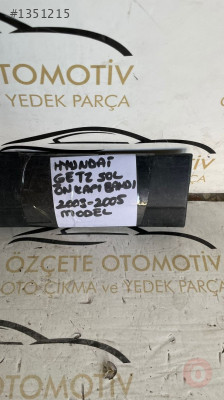 #1351215
OTOMOTİV
VE YEDEK PARÇA
HYUNDAİ
GETZ SOL
ÖN KAPI BANDI
2003-2005
MODEL
ÖZÇETE OTOMOTİV
OTO ÇIKMA ve YEDEK PARÇA